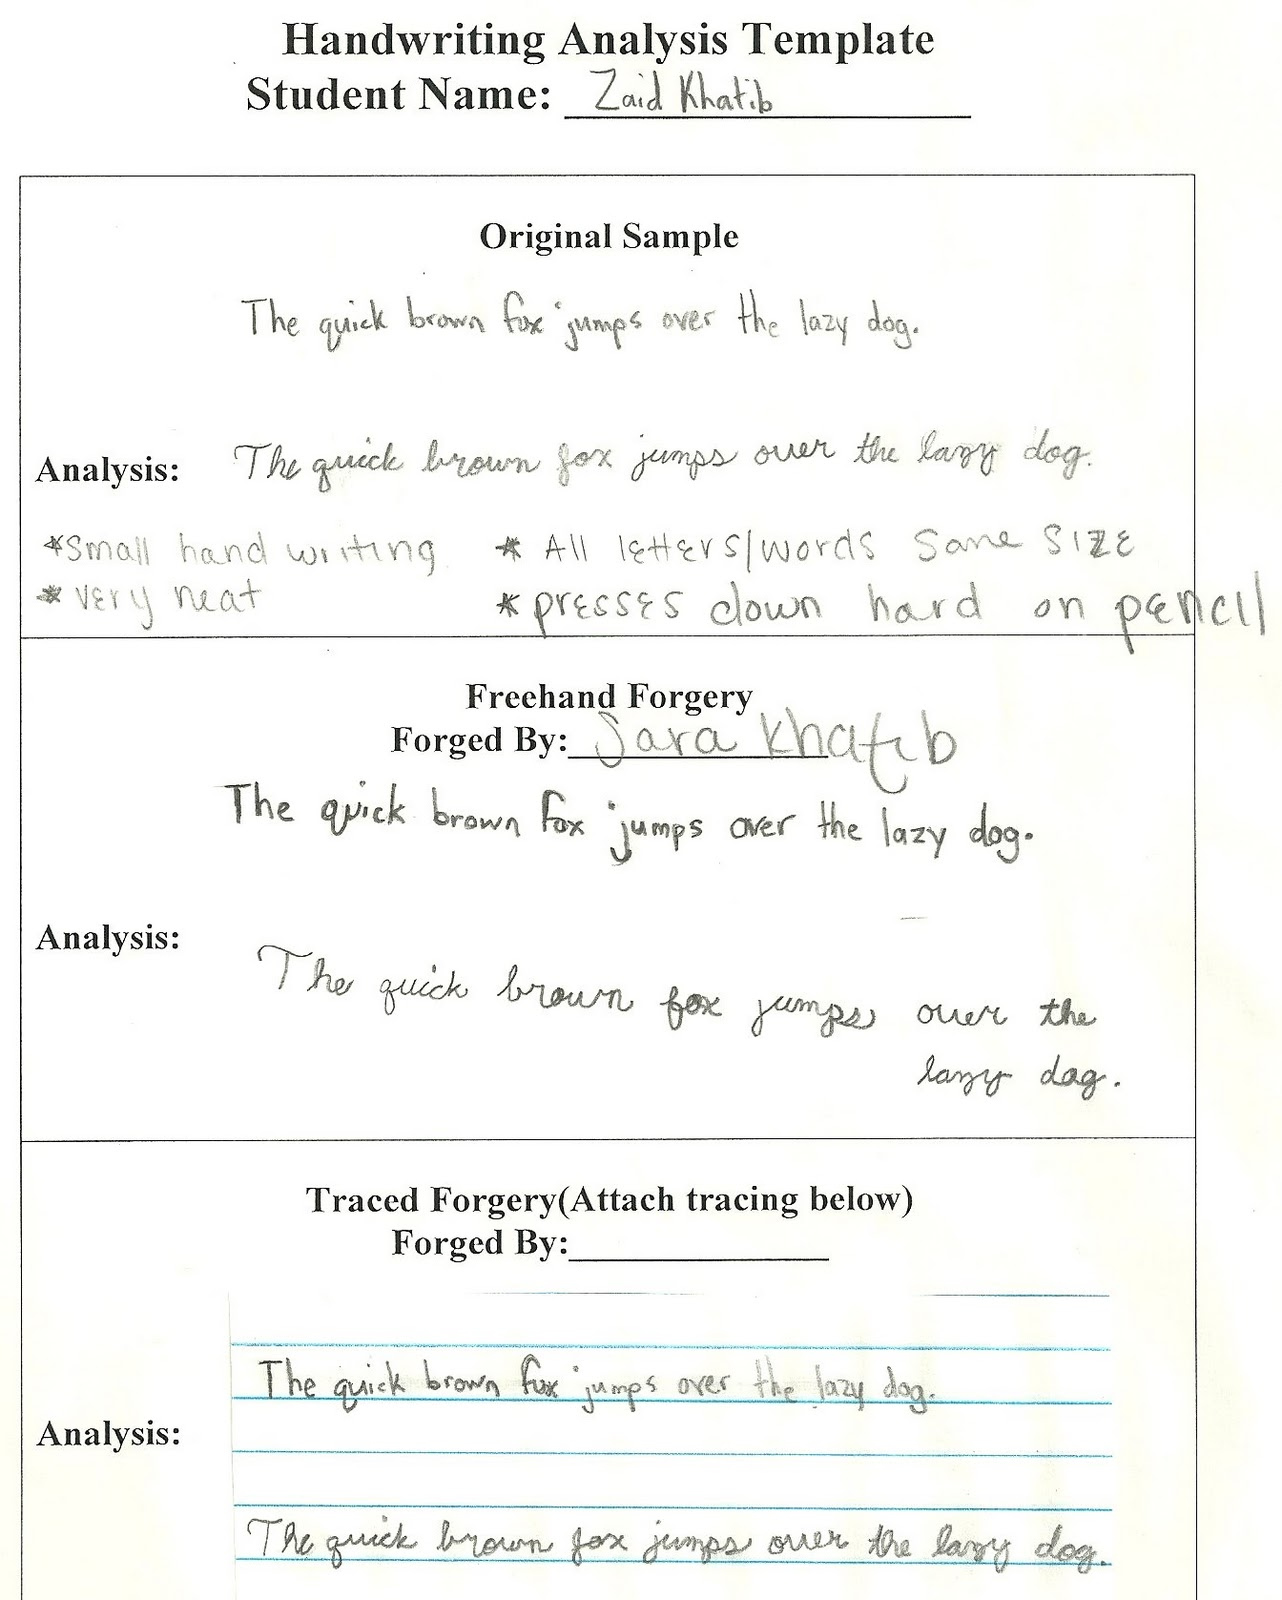 Handwriting Analysis Template
Student Name: Zaid Khatib
Original Sample
The quick brown fox jumps over the lazy dog.
Analysis: The quick brown fox jumps over the lazy dog.
*Small hand writing * All letters/words same size
*very neat *presses down hard on pencil
Freehand Forgery
Forged By: Sara Khatib
The quick brown fox jumps over the lazy dog.
Analysis:
The quick brown fox jumps over the
lazy dog.
Traced Forgery(Attach tracing below)
Forged By:
The quick brown fox jumps over the lazy dog.
Analysis:
The quick brown fox jumps over the lazy dog.